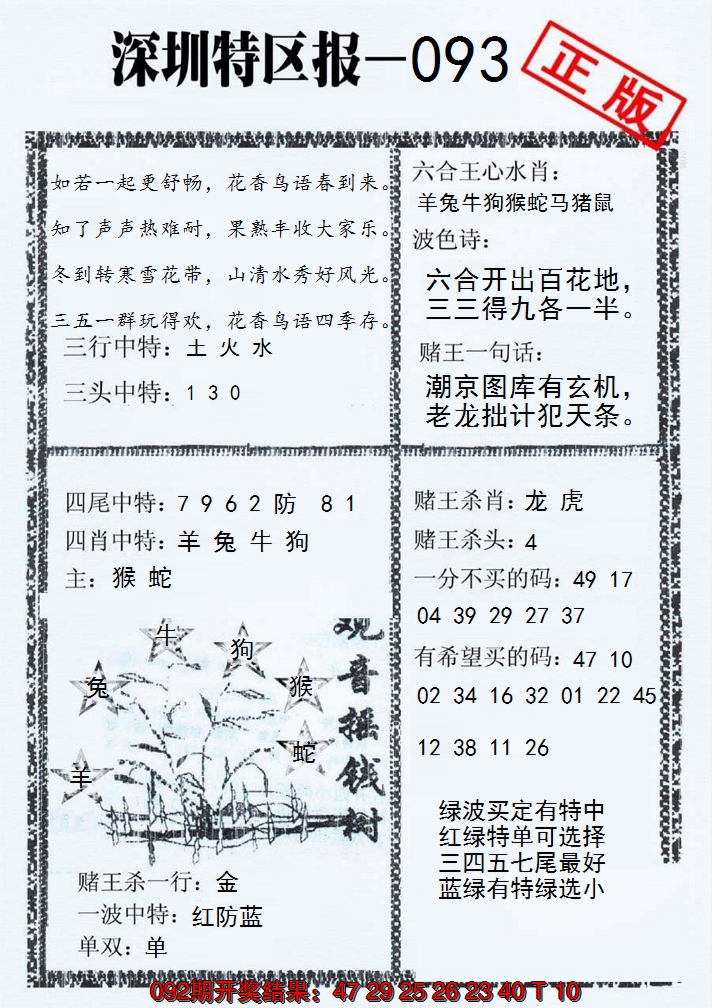 深圳特区报—093
正版
如若一起更舒畅，花香鸟语春到来。
知了声声热难耐，果熟丰收大家乐。
冬到转寒雪花带，山清水秀好风光。
三五一群玩得欢，花香鸟语四季存。
三行中特：土 火 水
三头中特：1 3 0
六合王心水肖：
羊兔牛狗猴蛇马猪鼠
波色诗：
六合开出百花地，
三三得九各一半。
赌王一句话：
潮京图库有玄机，
老龙拙计犯天条。
四尾中特：7 9 6 2 防 8 1
四肖中特：羊 兔 牛 狗
主：猴 蛇
牛
狗
兔
猴
蛇
羊
观音摇钱树
赌王杀一行：金
一波中特：红防蓝
单双：单
赌王杀肖：龙 虎
赌王杀头：4
一分不买的码：49 17
04 39 29 27 37
有希望买的码：47 10
02 34 16 32 01 22 45
12 38 11 26
绿波买定有特中
红绿特单可选择
三四五七尾最好
蓝绿有特绿选小
092期开奖结果：47 29 25 26 23 40 T 10